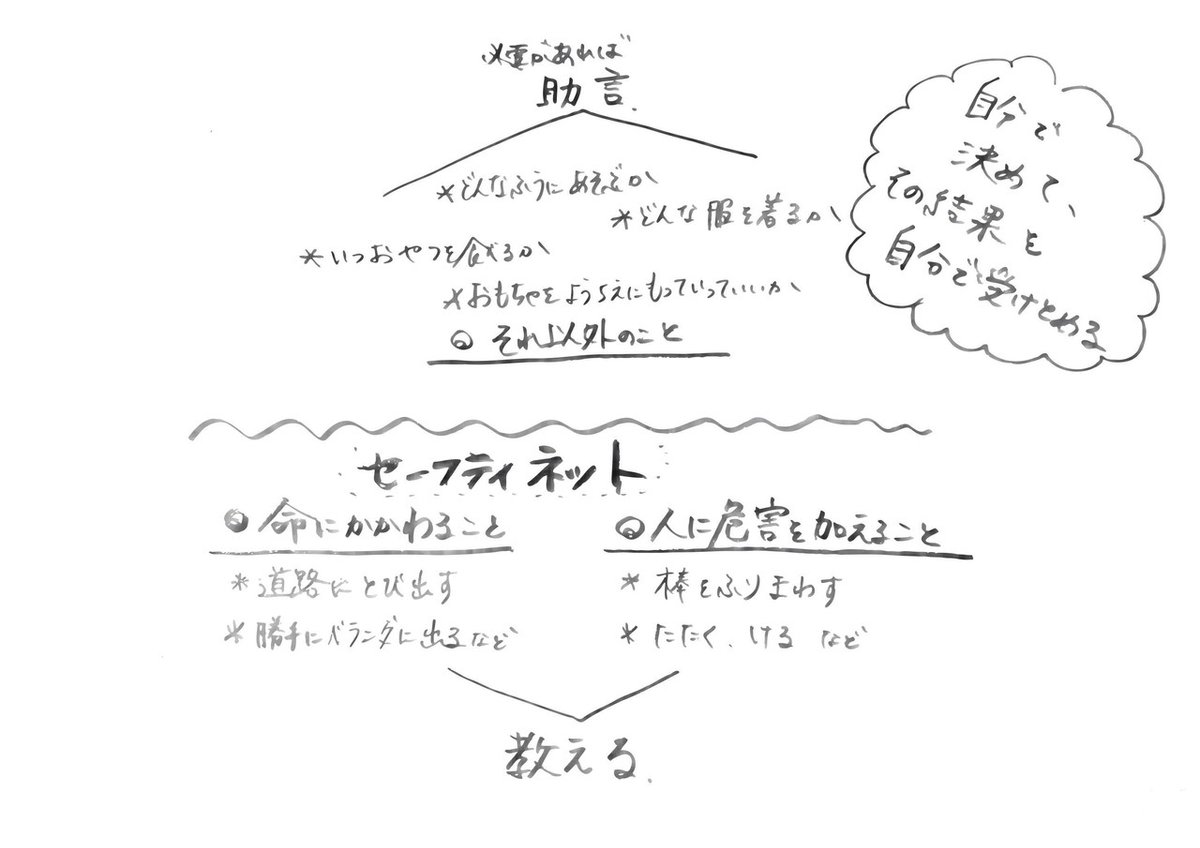 必要があれば
助言.
*どんなふうにあそぶか
*どんな服を着るか
*いつおやつを食べるか
*おもちゃをようちえんにもっていっていいか
それ以外のこと
自分で
決めて、
その結果を
自分で受けとめる
セーフティネット
命にかかわること
*道路にとび出す
*勝手にベランダに出るなど
人に危害を加えること
*棒をふりまわす
*たたく、けるなど
教える.